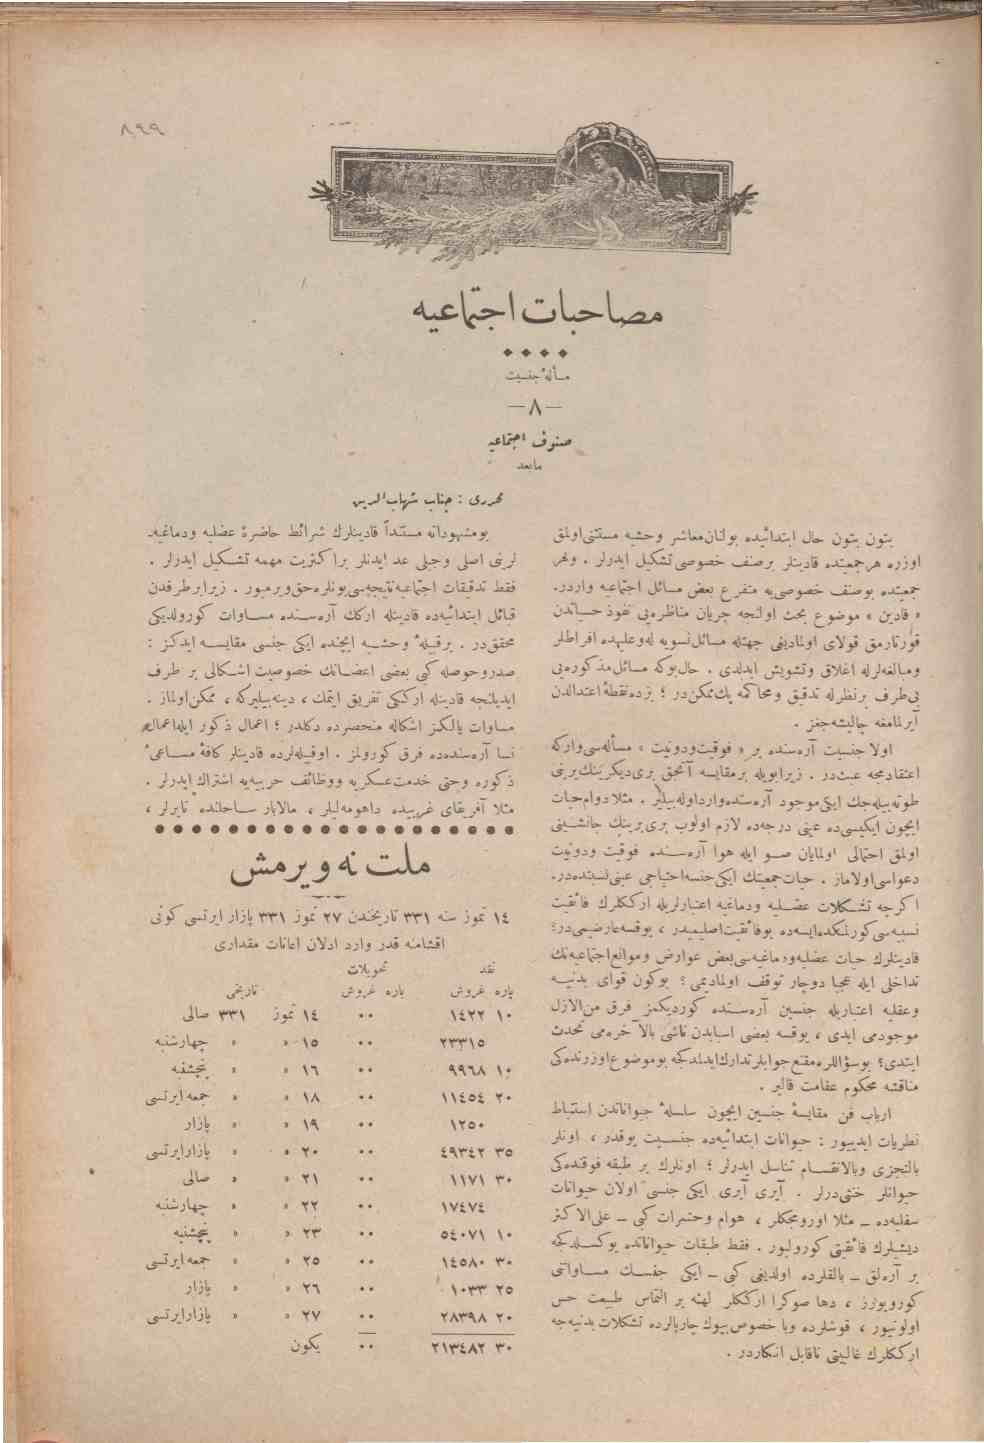 ٨٩٩
مصاحبات اجتماعیه
مسألهٔ جنسیت
—٨—
صنوف اجتماعیه
مابعد
محرری : جناب شهاب الدین
بتون بتون حال ابتدائیده بولنان معاشر وحشیه مستثنی اولمق
اوزره هر جمعیتده قادینلر بر صنف خصوصی تشکیل ایدرلر . وهر
جمعیتده بوصنف خصوصی‌یه متفرع بعض مسائل اجتماعیه واردر.
« قادین » موضوع بحث اولنجه جریان مناظره‌یی نفوذ حساندن
قورتارمق قولای اولمادیغی جهتله مسائل نسویه له وعلیهده افراطلر
ومبالغه‌لرله اغلاق وتشویش ایدلدی . حال بوکه مسائل مذکوره‌یی
بی‌طرف بر نظرله تدقیق ومحاکمه پك ممکن‌در ؛ بزده نقطهٔ اعتدالدن
آیرلمامغه چالیشه‌جغز .
اولا جنسیت آره‌سنده بر « فوقیت ودونیت » مسأله‌سی وارکه
اعتقادمجه عبث‌در . زیرا بویله بر مقایسه آنجق بری دیکرینك یرینی
طوته‌بیله‌جك ایکی موجود آره‌سنده وارد اوله‌بیلیر . مثلا دوام حیات
ایچون ایکیسی‌ده عینی درجه‌ده لازم اولوب بری برینك جانشینی
اولمق احتمالی اولمایان صو ایله هوا آره‌سنده فوقیت ودونیت
دعواسی اولاماز . حیات جمعیتك ایکی جنسه احتیاجی عینی نسبتده‌در.
اکرچه تشکلات عضلیه ودماغیه اعتباریله ارککلرك فائقیت
نسبیه‌سی کورلمکده ایسه‌ده بو فائقیت اصلیمیدر ، یوقسه عارضیمی‌در؟
قادینلرك حیات عضلیه ودماغیه‌سی بعض عوارض وموانع اجتماعیه‌نك
تداخلی ایله عجبا دوچار توقف اولمادیمی ؟ بوکون قوای بدنیه
وعقلیه اعتباریله جنسین آره‌سنده کوردیکمز فرق من‌الازل
موجودمی ایدی ، یوقسه بعضی اسبابدن ناشی بالآخره‌می تحدث
ایتدی؟ بو سؤاللره مقنع جوابلر تدارك ایدلدکجه بو موضوع اوزرنده‌کی
مناقشه محکوم عقامت قالیر .
ارباب فن مقایسهٔ جنسین ایچون سلسلهٔ حیواناتدن استنباط
نظریات ایدییور : حیوانات ابتدائیه‌ده جنسیت یوقدر ، اونلر
بالتجزی وبالانقسام تناسل ایدرلر ؛ اونلرك بر طبقه فوقنده‌کی
حیوانلر خنثی‌درلر . آیری آیری ایکی جنسی اولان حیوانات
سفلیه‌ده ــ مثلا اورومجکلر ، هوام وحشرات کبی ــ علی‌الاکثر
دیشیلرك فائقیتی کورولیور . فقط طبقات حیوانانده یوکسلدکجه
بر آره‌لق ــ بالقلرده اولدیغی کبی ــ ایکی جنسك مساواتی
کورویورز ، دها صوکرا ارککلر لهنه بر التماس طبیعت حس
اولونیور ، قوشلرده وبا خصوص بیوك چارپالرده تشکلات بدنیه‌جه
ارککلرك غالبیتی ناقابل انکاردر .
بومشهوداته مستنداً قادینلرك شرائط حاضرهٔ عضلیه ودماغیه‌ـ
لرینی اصلی وجبلی عد ایدنلر بر اکثریت مهمه تشکیل ایدرلر .
فقط تدقیقات اجتماعیه نتیجه‌سی بونلره حق ویرمیور . زیرا بر طرفدن
قبائل ابتدائیه‌ده قادینله ارکك آره‌سنده مساوات کورولدیکی
محقق‌در . بر قبیلهٔ وحشیه ایچنده ایکی جنسی مقایسه ایدکز :
صدر وحوصله کبی بعضی اعضانك خصوصیت اشکالی بر طرف
ایدیلنجه قادینله ارککی تفریق ایتمك ، دینه‌بیلیرکه ، ممکن اولماز .
مساوات یالکز اشکاله منحصرده دکلدر ؛ اعمال ذکور ایله اعمال
نسا آره‌سنده‌ده فرق کورولمز . اوقبیله‌لرده قادینلر کافهٔ مساعیٔ
ذکوره وحتی خدمت عسکریه ووظائف حربیه‌یه اشتراك ایدرلر .
مثلا آفریقای غربیده داهومه‌لیلر ، مالابار ساحلنده نایرلر ،
ملت نه ویرمش
١٤ تموز سنه ٣٣١ تاریخندن ٢٧ تموز ٣٣١ پازار ایرتسی کونی
اقشامنه قدر وارد اولان اعانات مقداری
نقد تحویلات
پاره غروش پاره غروش تاریخی
١٠ ١٤٢٢ ٠٠ ١٤ تموز ٣٣١ صالی
٢٣٣١٥ ٠٠ ١٥ » » چهارشنبه
١٠ ٩٩٦٨ ٠٠ ١٦ » » پنجشنبه
٢٠ ١١٤٥٤ ٠٠ ١٨ » » جمعه ایرتسی
١٢٥٠ ٠٠ ١٩ » » پازار
٣٥ ٤٩٣٤٢ ٠٠ ٢٠ » » پازار ایرتسی
٣٠ ١١٧١ ٠٠ ٢١ » » صالی
١٧٤٧٤ ٠٠ ٢٢ » » چهارشنبه
١٠ ٥٤٠٧١ ٠٠ ٢٣ » » پنجشنبه
٣٠ ١٤٥٨٠ ٠٠ ٢٥ » » جمعه ایرتسی
٢٥ ١٠٣٣ ٠٠ ٢٦ » » پازار
٢٠ ٢٨٣٩٨ ٠٠ ٢٧ » » پازار ایرتسی
٣٠ ٢١٣٤٨٢ ٠٠ یکون